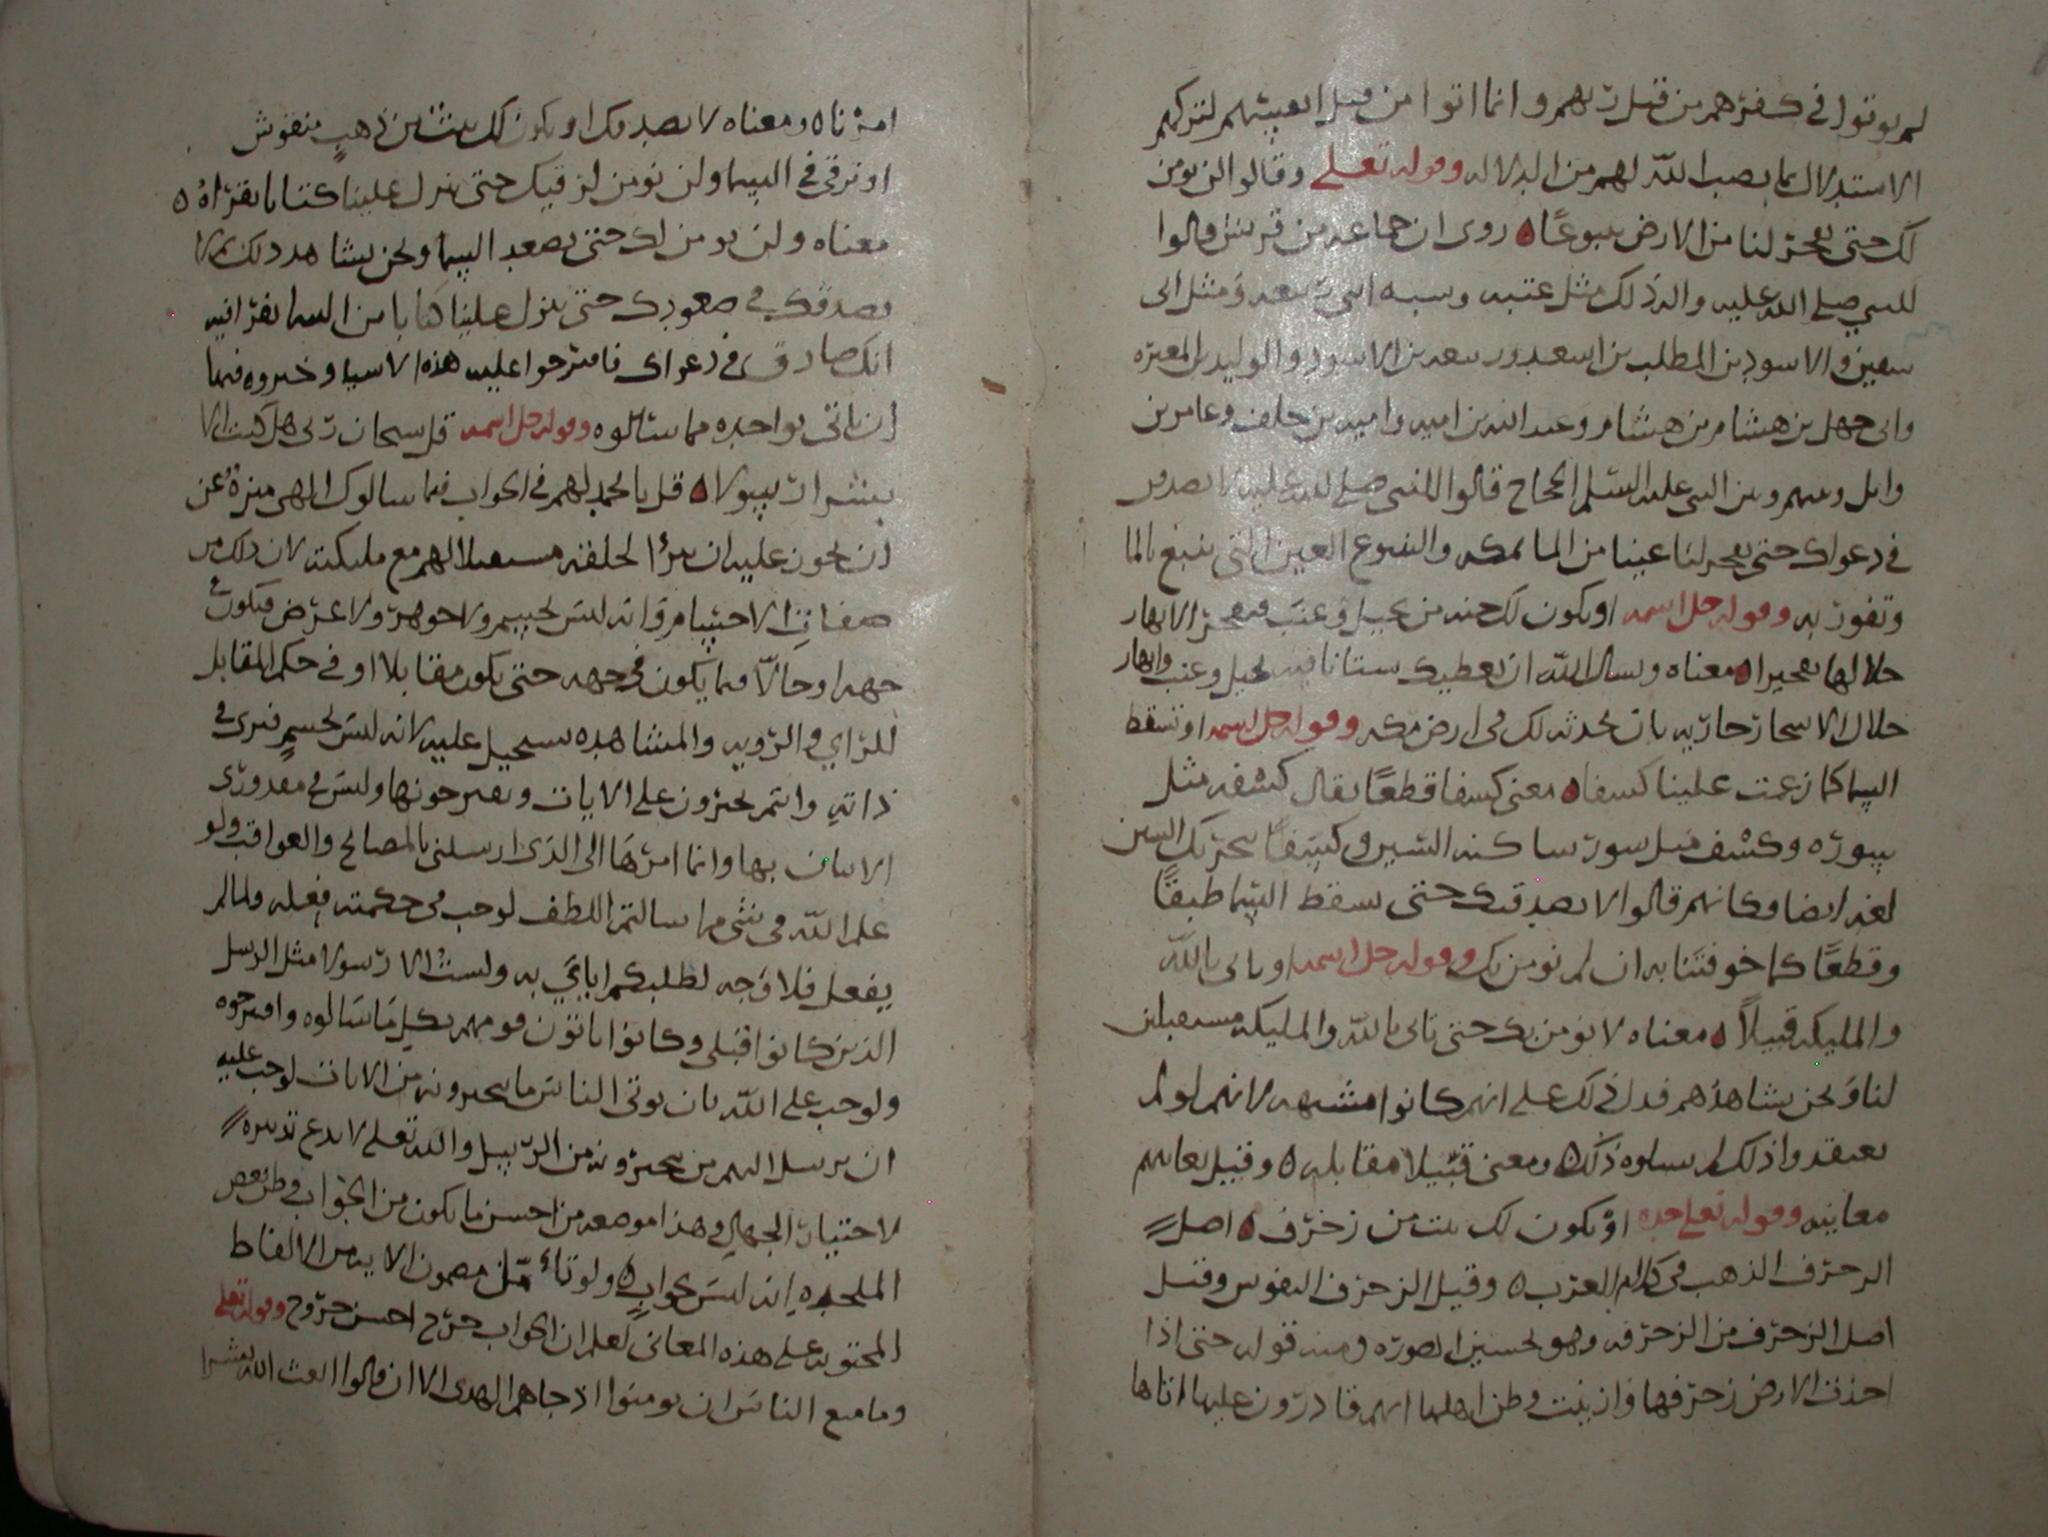 لم يوتوا في كفرهم من قبل ربهم وانما اتوا من قبل انفسهم لتركهم
الاستدلال بما نصب الله لهم من الدلاله وقوله تعلى وقالوا لن نومن
لك حتى تفجر لنا من الارض ينبوعًا ه روى ان جماعه من قريش قالوا
للنبي صلى الله عليه واله ذلك مثل عتبه وشيبه ابني ربيعه ومثل ابى
سفين والاسود بن المطلب بن اسعد وزمعه بن الاسود والوليد بن المغيره
وابي جهل بن هشام بن هشام وعبد الله بن اميه واميه بن خلف وعامر بن
وايل ونبيه ومنبه السلم الحجاج قالوا للنبي صلى الله عليه لا نصدقك
في دعواك حتى تفجر لنا عينا من الما بمكه والينبوع العين التي تنبع بالما
وتفور به وقوله جل اسمه او تكون لك جنه من نخيل وعنب فتفجر الانهار
خلالها تفجيرا ه معناه وتسال الله ان يعطيك بستانا فيه نخيل وعنب وانهار
خلال الاشجار جاريه بان يحدثه لك في ارض مكه وقوله جل اسمه او تسقط
السما كما زعمت علينا كسفا ه معنى كسفا قطعًا يقال كسفه مثل
بسوره وكسف مثل سور ساكنه السين وكسفًا بتحريك السين
لغه ايضا وكانهم قالوا لا نصدقك حتى تسقط السما طبقًا
وقطعًا كما خوفتنا به ان لم نومن بك وقوله جل اسمه او تاتى بالله
والمليكه قبيلاً ه معناه لا نومن بك حتى تاتى بالله والمليكه مستقبلين
لنا ونحن نشاهدهم فدل ذلك على انهم كانوا مشبهه لانهم لو لم
يعتقدوا ذلك لم يسلوه ذلك ه ومعنى قبيلا مقابله ه وقبيل يعاينهم
معاينه وقوله تعلى جده او يكون لك بيت من زخرف ه اصل
الزخرف الذهب في كلام العرب ه وقيل الزخرف النقوش وقيل
اصل الزخرف من الزخرفه وهو تحسين الصوره ومنه قوله حتى اذا
اخذت الارض زخرفها وازينت وظن اهلها انهم قادرون عليها اتاها
امرنا ه ومعناه لا نصدقك او يكون لك بيت من ذهب منقوش
او ترقى في السما ولن نومن لرقيك حتى تنزل علينا كتابا نقراه ه
معناه ولن نومن لك حتى تصعد السما ونحن نشاهد ذلك ثم لا
نصدقك في صعودك حتى تنزل علينا كتابا من السما نقرا فيه
انك صادق في دعواك فاقترحوا عليه هذه الاشيا وخيروه فيها
ان ياتى بواحده مما سئلوه وقوله جل اسمه قل سبحان ربى هل كنت الا
بشرا رسولا ه قل يا محمد لهم في الجواب فيما سالوك الهى منزه عن
ان يجوز عليه ان يرا لخلقه مستقبلا لهم مع مليكته لان ذلك من
صفات الاجسام وانه ليس بجسم ولا جوهر ولا عرض فيكون في
جهه او حالاً فيما يكون في جهه حتى يكون مقابلا او في حكم المقابل
للراي والرويه والمشاهده يستحيل عليه لانه ليس بجسم فيرى في
ذاته وانتم تخبرون على الايات وتقترحونها وليس في مقدورى
الاتيان بها وانما امرها الى الذى ارسلنى بالمصالح والعواقب ولو
علم الله في شى مما سالتم اللطف لوجب في حكمته فعله ولما لم
يفعل فلا وجه لطلبكم اياي به ولست الا رسولا مثل الرسل
الذين كانوا قبلى وكانوا لا ياتون قومهم بكل ما سالوه واقترحوه
ولو وجب على الله بان يوتى الناس ما يتخيرونه من الايات لوجب عليه
ان يرسل اليهم من يتخيرونه من الرسل والله تعلى لا يدع تدبيره
لاختيار الجهال وهذا موضعه من احسن ما يكون من الجواب وظن بعض
الملحده انه ليس بجواب ه ولو تامل مضمون الايه من الالفاظ
المحتويه على هذه المعانى لعلم ان الجواب خرج احسن خروج وقوله تعلى
وما منع الناس ان يومنوا اذ جاهم الهدى الا ان قالوا ابعث الله بشرا